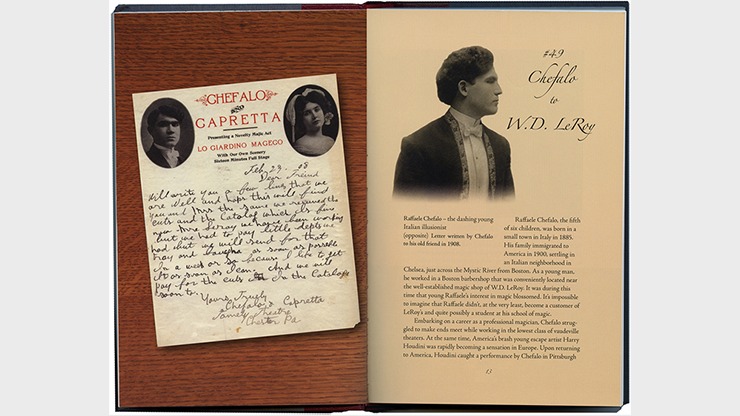 CHEFALO
AND
CAPRETTA
Presenting a Novelty Magic Act
LO GIARDINO MAGEGO
With Our Own Scenery
Sixteen Minutes Full Stage
Feb, 23 - 08
Dear Friend
Will write you a few lines that we
are well and hope this will find
you and Mrs the same we received the
cuts and the Catalog which
Mrs Leroy we have been working
but we had to pay little depts we
had but we will send for that
tray and as soon as possible
In a week or so because I like to get
It as soon as I can. And we will
pay for the cuts In the Catalog
soon to.
Yours Truly
Chefalo & Capretta
Theatre
Chester Pa.
#49
Chefalo
to
W.D. LeRoy
Raffaele Chefalo – the dashing young
Italian illusionist
(opposite) Letter written by Chefalo
to his old friend in 1908.
Raffaele Chefalo, the fifth
of six children, was born in a
small town in Italy in 1885.
His family immigrated to
America in 1900, settling in
an Italian neighborhood in
Chelsea, just across the Mystic River from Boston. As a young man,
he worked in a Boston barbershop that was conveniently located near
the well-established magic shop of W.D. LeRoy. It was during this
time that young Raffaele's interest in magic blossomed. It's impossible
to imagine that Raffaele didn't, at the very least, become a customer of
LeRoy's and quite possibly a student at his school of magic.
Embarking on a career as a professional magician, Chefalo strug-
gled to make ends meet while working in the lowest class of vaudeville
theaters. At the same time, America's brash young escape artist Harry
Houdini was rapidly becoming a sensation in Europe. Upon returning
to America, Houdini caught a performance by Chefalo in Pittsburgh